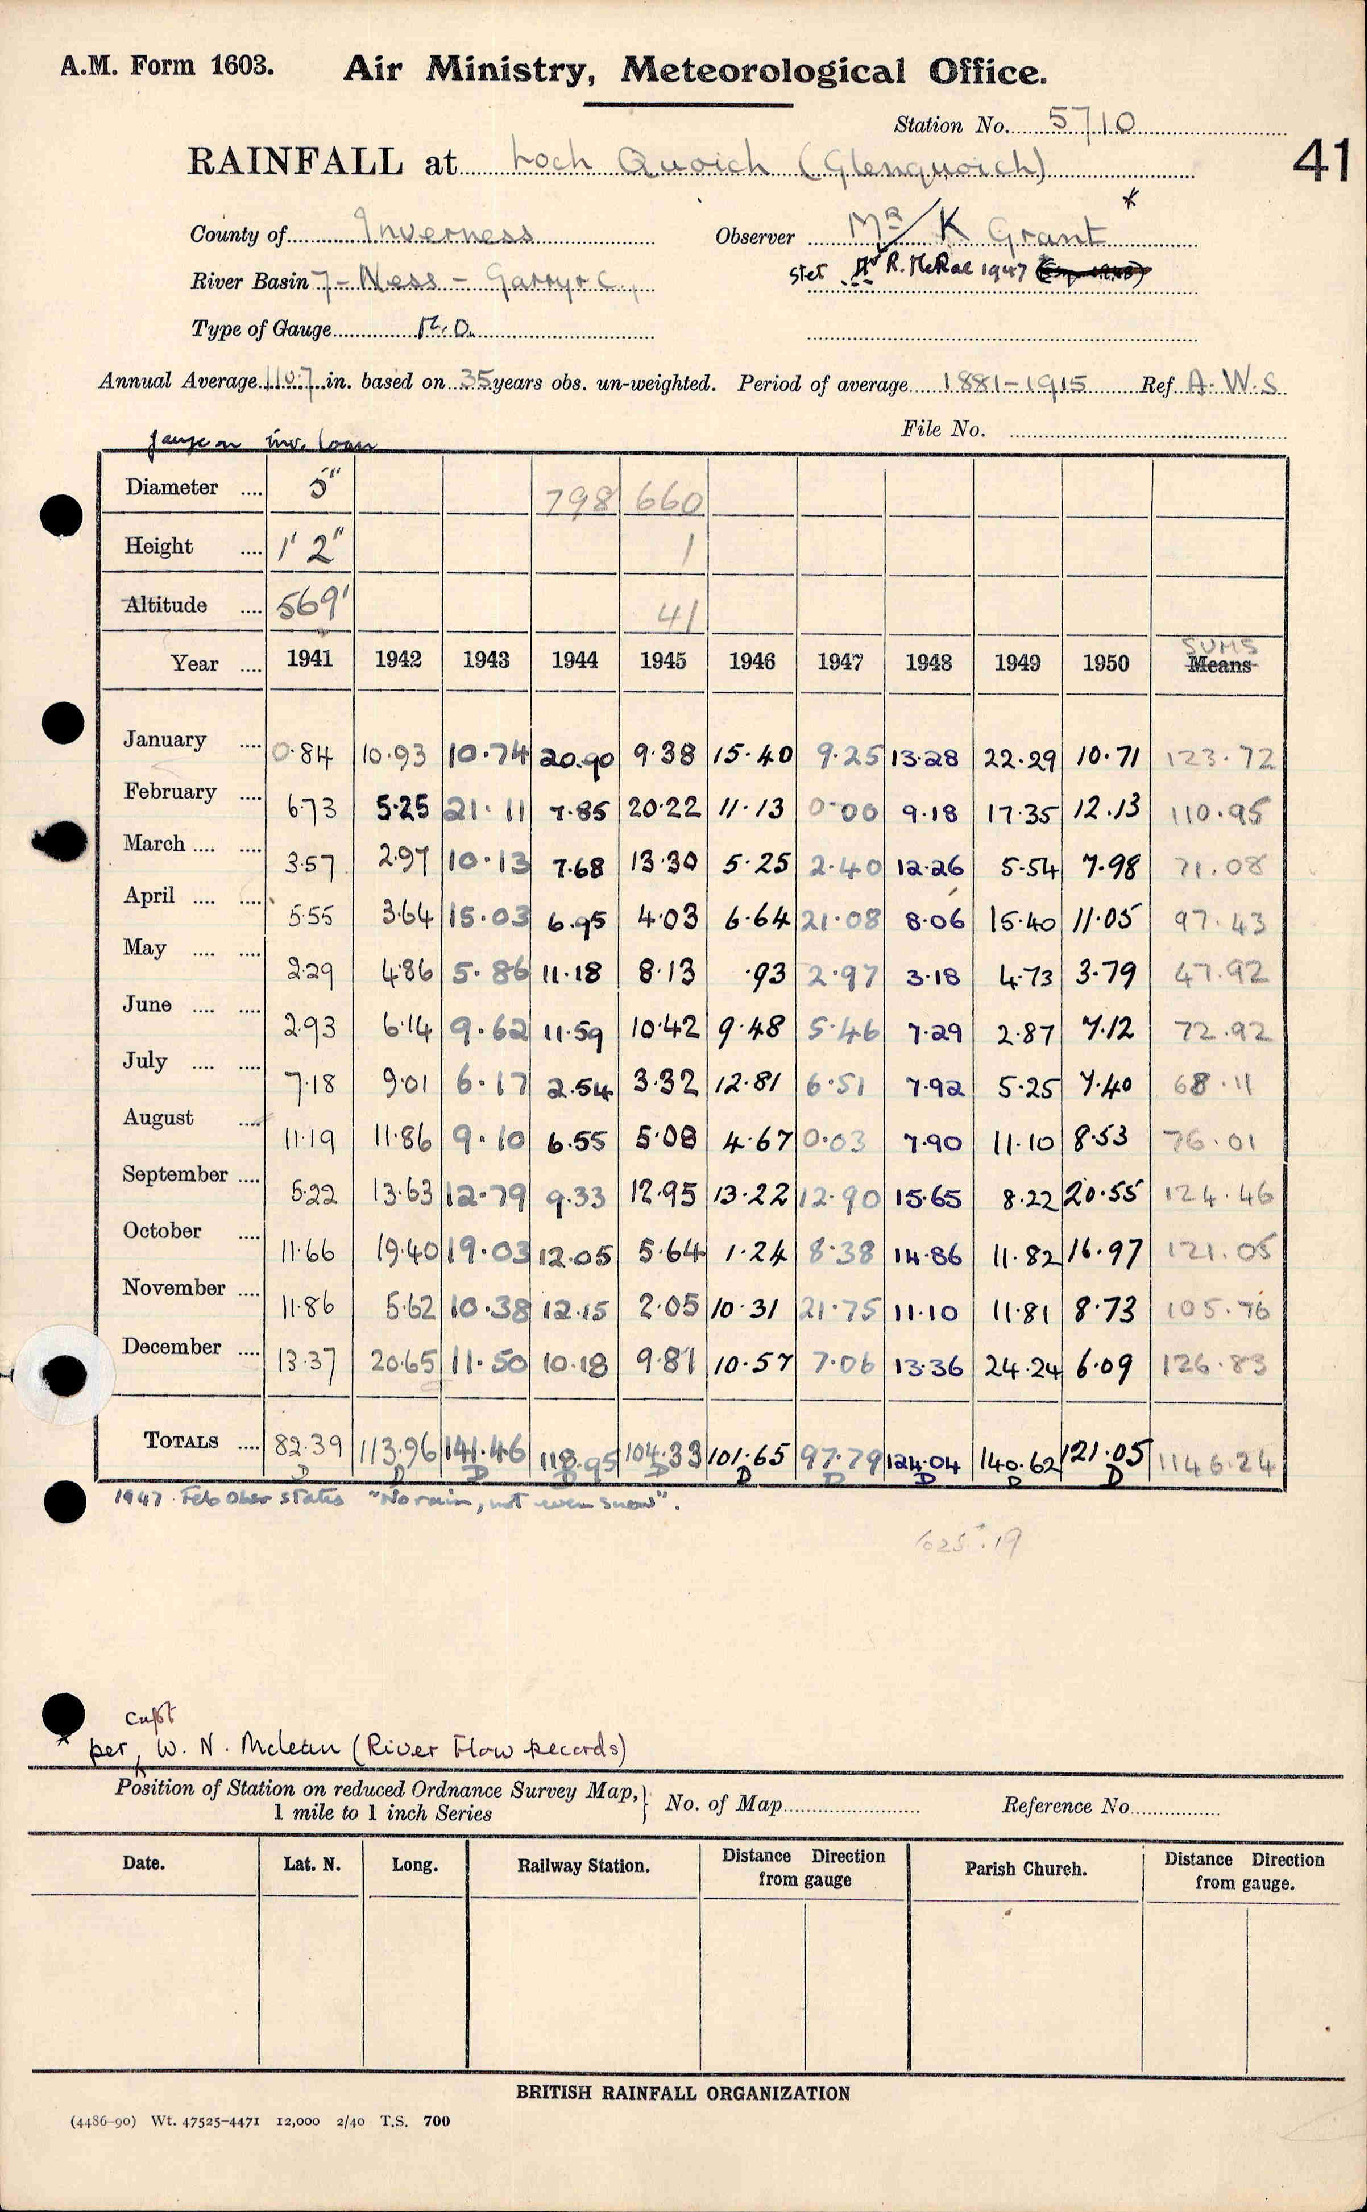 A.M. Form 1603. Air Ministry, Meteorological Office.
Station No. 5710
RAINFALL at Loch Quoich (Glenquoich)
41
County of Inverness Observer Mr K Grant *
River Basin 7 - Ness - Garry &c., Stet Mr R. McRae 1947
Type of Gauge M.O.
Annual Average 110.7 in. based on 35 years obs. un-weighted. Period of average 1881-1915 Ref. A.W.S
File No.
gauge on inv. loan
Diameter .... 5" 798 660
Height .... 1' 2" 1
Altitude .... 569' 41
Year .... 1941 1942 1943 1944 1945 1946 1947 1948 1949 1950 SUMS Means
January .... 0.84 10.93 10.74 20.90 9.38 15.40 9.25 13.28 22.29 10.71 123.72
February .... 6.73 5.25 21.11 7.85 20.22 11.13 0.00 9.18 17.35 12.13 110.95
March .... .... 3.57 2.97 10.13 7.68 13.30 5.25 2.40 12.26 5.54 7.98 71.08
April .... .... 5.55 3.64 15.03 6.95 4.03 6.64 21.08 8.06 15.40 11.05 97.43
May .... .... 2.29 4.86 5.86 11.18 8.13 .93 2.97 3.18 4.73 3.79 47.92
June .... .... 2.93 6.14 9.62 11.59 10.42 9.48 5.46 7.29 2.87 7.12 72.92
July .... .... 7.18 9.01 6.17 2.54 3.32 12.81 6.51 7.92 5.25 7.40 68.11
August .... 11.19 11.86 9.10 6.55 5.08 4.67 0.03 7.90 11.10 8.53 76.01
September .... 5.22 13.63 12.79 9.33 12.95 13.22 12.90 15.65 8.22 20.55 124.46
October .... 11.66 19.40 19.03 12.05 5.64 1.24 8.38 14.86 11.82 16.97 121.05
November .... 11.86 5.62 10.38 12.15 2.05 10.31 21.75 11.10 11.81 8.73 105.76
December .... 13.37 20.65 11.50 10.18 9.81 10.57 7.06 13.36 24.24 6.09 126.83
TOTALS .... 82.39 113.96 141.46 118.95 104.33 101.65 97.79 124.04 140.62 121.05 1146.24
D D D D D D D D D D
1947 Feb Obser states "No rain, not even snow".
625.19
capt
* per W. N. McLean (River Flow Records)
Position of Station on reduced Ordnance Survey Map, 1 mile to 1 inch Series } No. of Map Reference No.
Date. Lat. N. Long. Railway Station. Distance Direction from gauge Parish Church. Distance Direction from gauge.
BRITISH RAINFALL ORGANIZATION
(4486-90) Wt. 47525-4471 12,000 2/40 T.S. 700